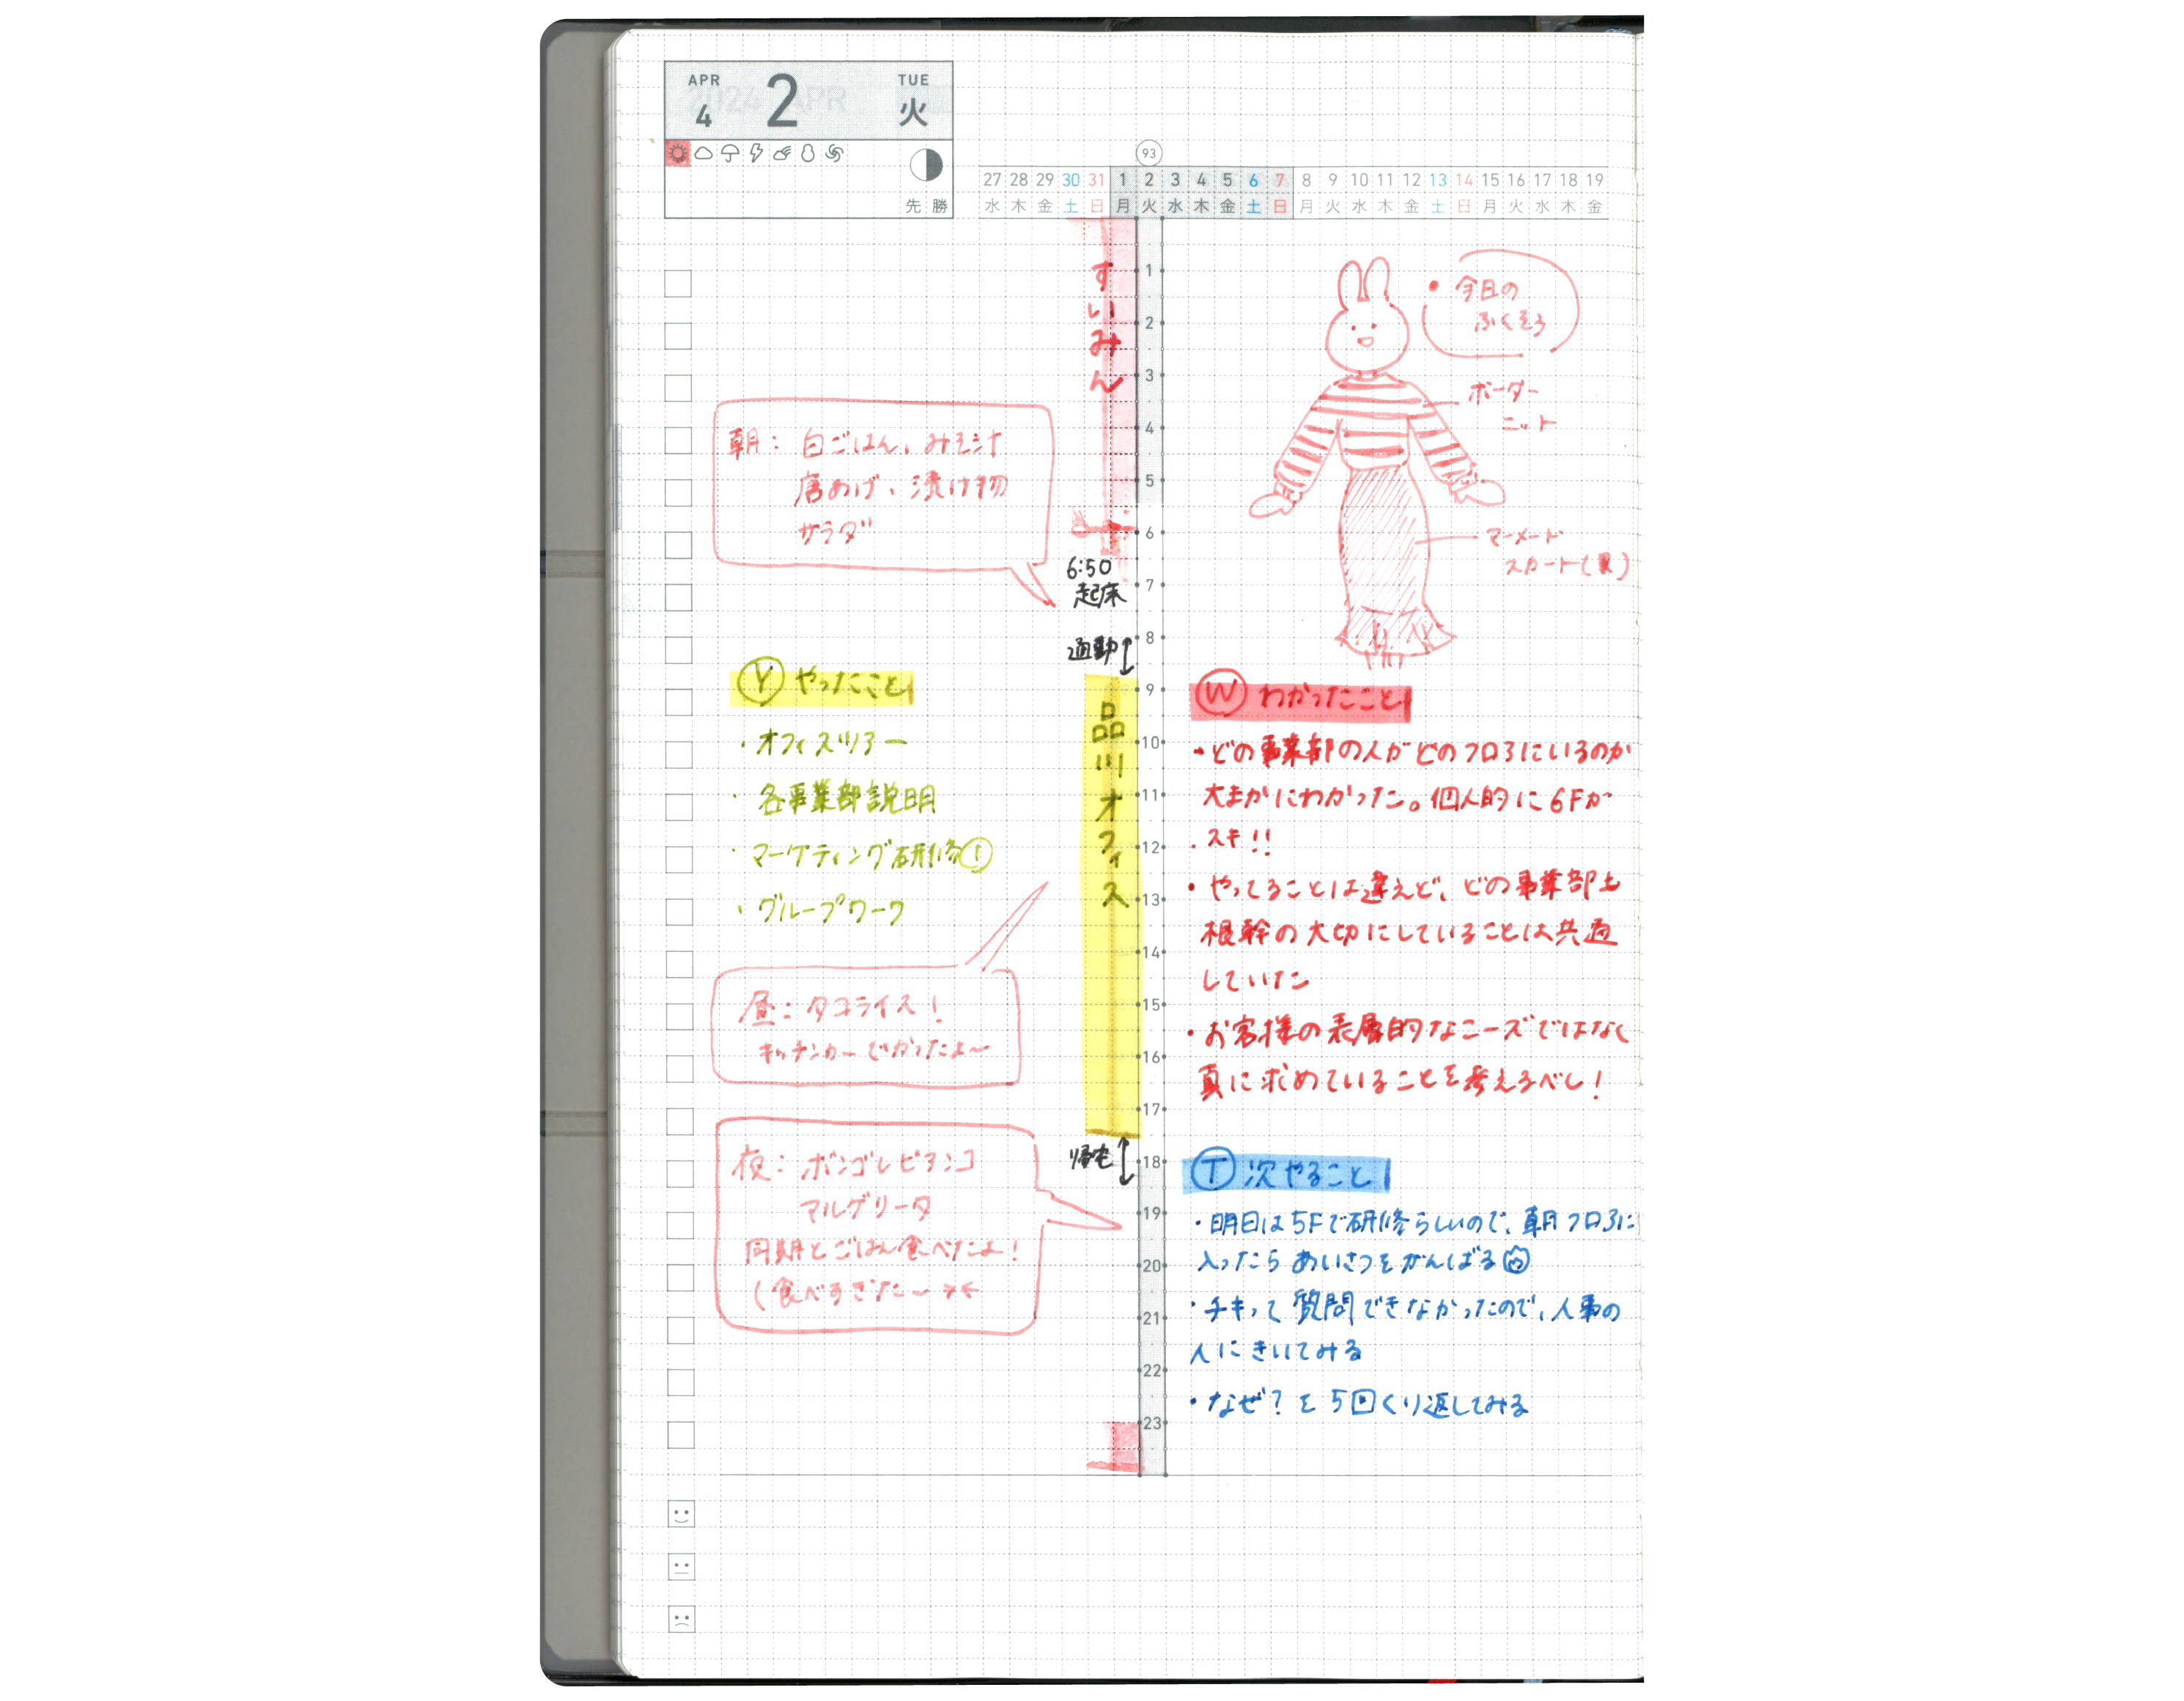 APR
4
2
TUE
火
先勝
93
27 28 29 30 31 1 2 3 4 5 6 7 8 9 10 11 12 13 14 15 16 17 18 19
水 木 金 土 日 月 火 水 木 金 土 日 月 火 水 木 金 土 日 月 火 水 木 金
すいみん
1
2
3
4
5
6
7
8
9
10
11
12
13
14
15
16
17
18
19
20
21
22
23
朝:白ごはん、みそ汁
唐あげ、漬け物
サラダ
6:50
起床
通勤
品川オフィス
帰宅
Ⓨ やったこと
・オフィスツアー
・各事業部説明
・マーケティング研修①
・グループワーク
昼:タコライス!
キッチンカーでかったよ〜
夜:ボンゴレビアンコ
マルゲリータ
同期とごはん食べたよ!
(食べすぎた〜
・今日の
ふくそう
ボーダー
ニット
マーメード
スカート(黒)
Ⓦ わかったこと
・どの事業部の人がどのフロアにいるのか
大まかにわかった。個人的に6Fが
スキ!!
・やってることは違えど、どの事業部も
根幹の大切にしていることは共通
していた
・お客様の表層的なニーズではなく
真に求めていることを考えるべし!
Ⓣ 次やること
・明日は5Fで研修らしいので、朝フロアに
入ったらあいさつをがんばる
・チキって質問できなかったので、人事の
人にきいてみる
・なぜ?を5回くり返してみる